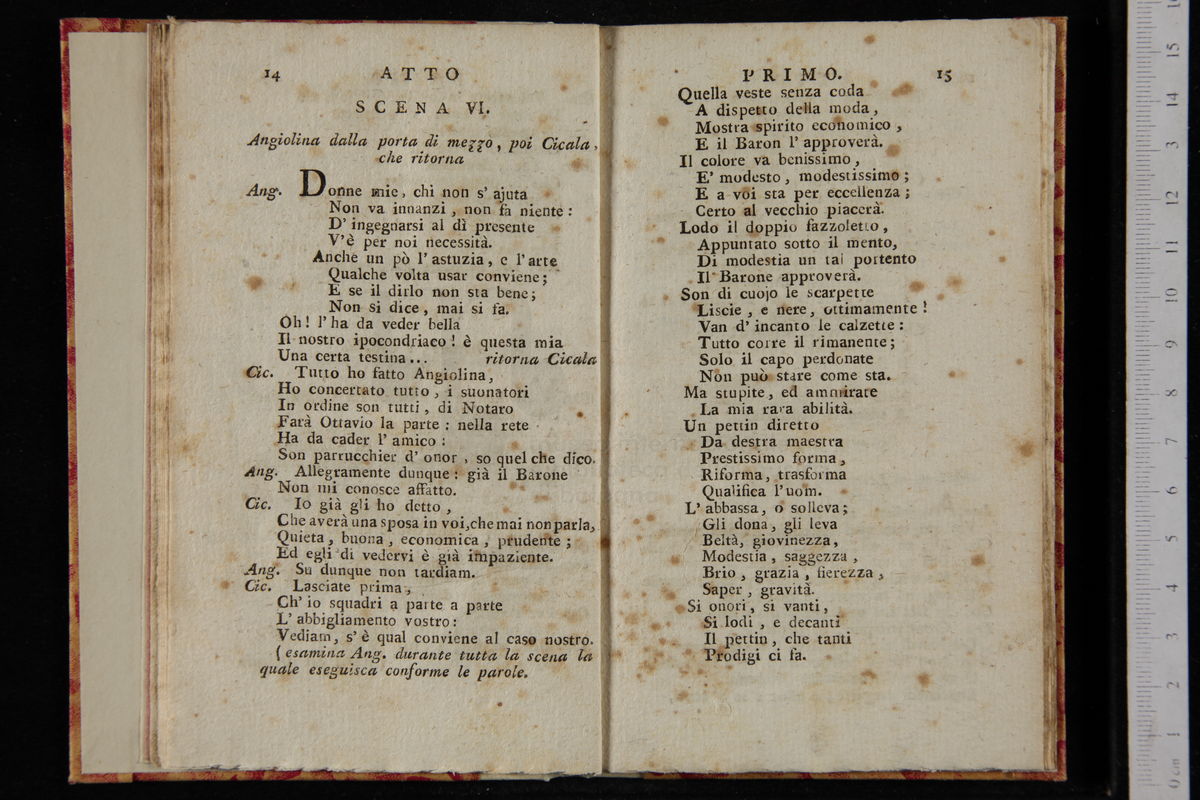 14 ATTO
SCENA VI.
Angiolina dalla porta di mezzo, poi Cicala,
che ritorna
Ang. Donne mie, chi non s' ajuta
Non va innanzi, non fa niente:
D' ingegnarsi al dì presente
V'è per noi necessità.
Anche un pò l' astuzia, e l' arte
Qualche volta usar conviene;
E se il dirlo non sta bene;
Non si dice, mai si fa.
Oh! l' ha da veder bella
Il nostro ipocondriaco! è questa mia
Una certa testina... ritorna Cicala
Cic. Tutto ho fatto Angiolina,
Ho concertato tutto, i suonatori
In ordine son tutti, di Notaro
Farà Ottavio la parte: nella rete
Ha da cader l' amico:
Son parrucchier d' onor, so quel che dico.
Ang. Allegramente dunque: già il Barone
Non mi conosce affatto.
Cic. Io già gli ho detto,
Che averà una sposa in voi, che mai non parla,
Quieta, buona, economica, prudente;
Ed egli di vedervi è già impaziente.
Ang. Su dunque non tardiam.
Cic. Lasciate prima,
Ch' io squadri a parte a parte
L' abbigliamento vostro:
Vediam, s' è qual conviene al caso nostro.
(esamina Ang. durante tutta la scena la
quale eseguisca conforme le parole.
PRIMO. 15
Quella veste senza coda
A dispetto della moda,
Mostra spirito economico,
E il Baron l' approverà.
Il colore va benissimo,
E' modesto, modestissimo;
E a voi sta per eccellenza;
Certo al vecchio piacerà.
Lodo il doppio fazzoletto,
Appuntato sotto il mento,
Di modestia un tal portento
Il Barone approverà.
Son di cuojo le scarpette
Liscie, e nere, ottimamente!
Van d' incanto le calzette:
Tutto corre il rimanente;
Solo il capo perdonate
Non può stare come sta.
Ma stupite, ed ammirate
La mia rara abilità.
Un pettin diretto
Da destra maestra
Prestissimo forma,
Riforma, trasforma
Qualifica l' uom.
L' abbassa, o solleva;
Gli dona, gli leva
Beltà, giovinezza,
Modestia, saggezza,
Brio, grazia, fierezza,
Saper, gravità.
Si onori, si vanti,
Si lodi, e decanti
Il pettin, che tanti
Prodigi ci fa.
0 cm 1 2 3 4 5 6 7 8 9 10 11 12 13 14 15 16